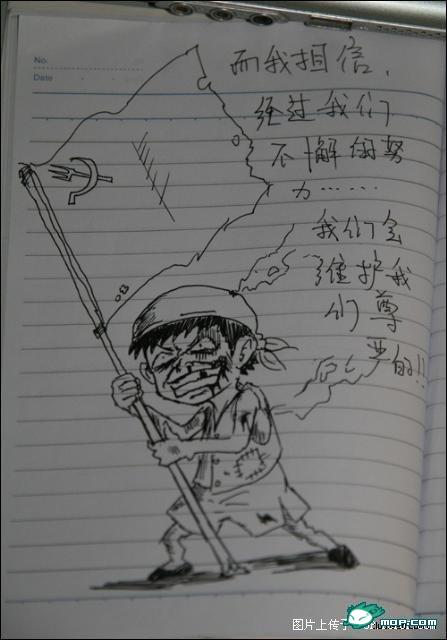 No.
Date
而我相信，
经过我们
不懈的努
力……
我们会
维护我
们尊
严的!!
图片上传于
mop.com